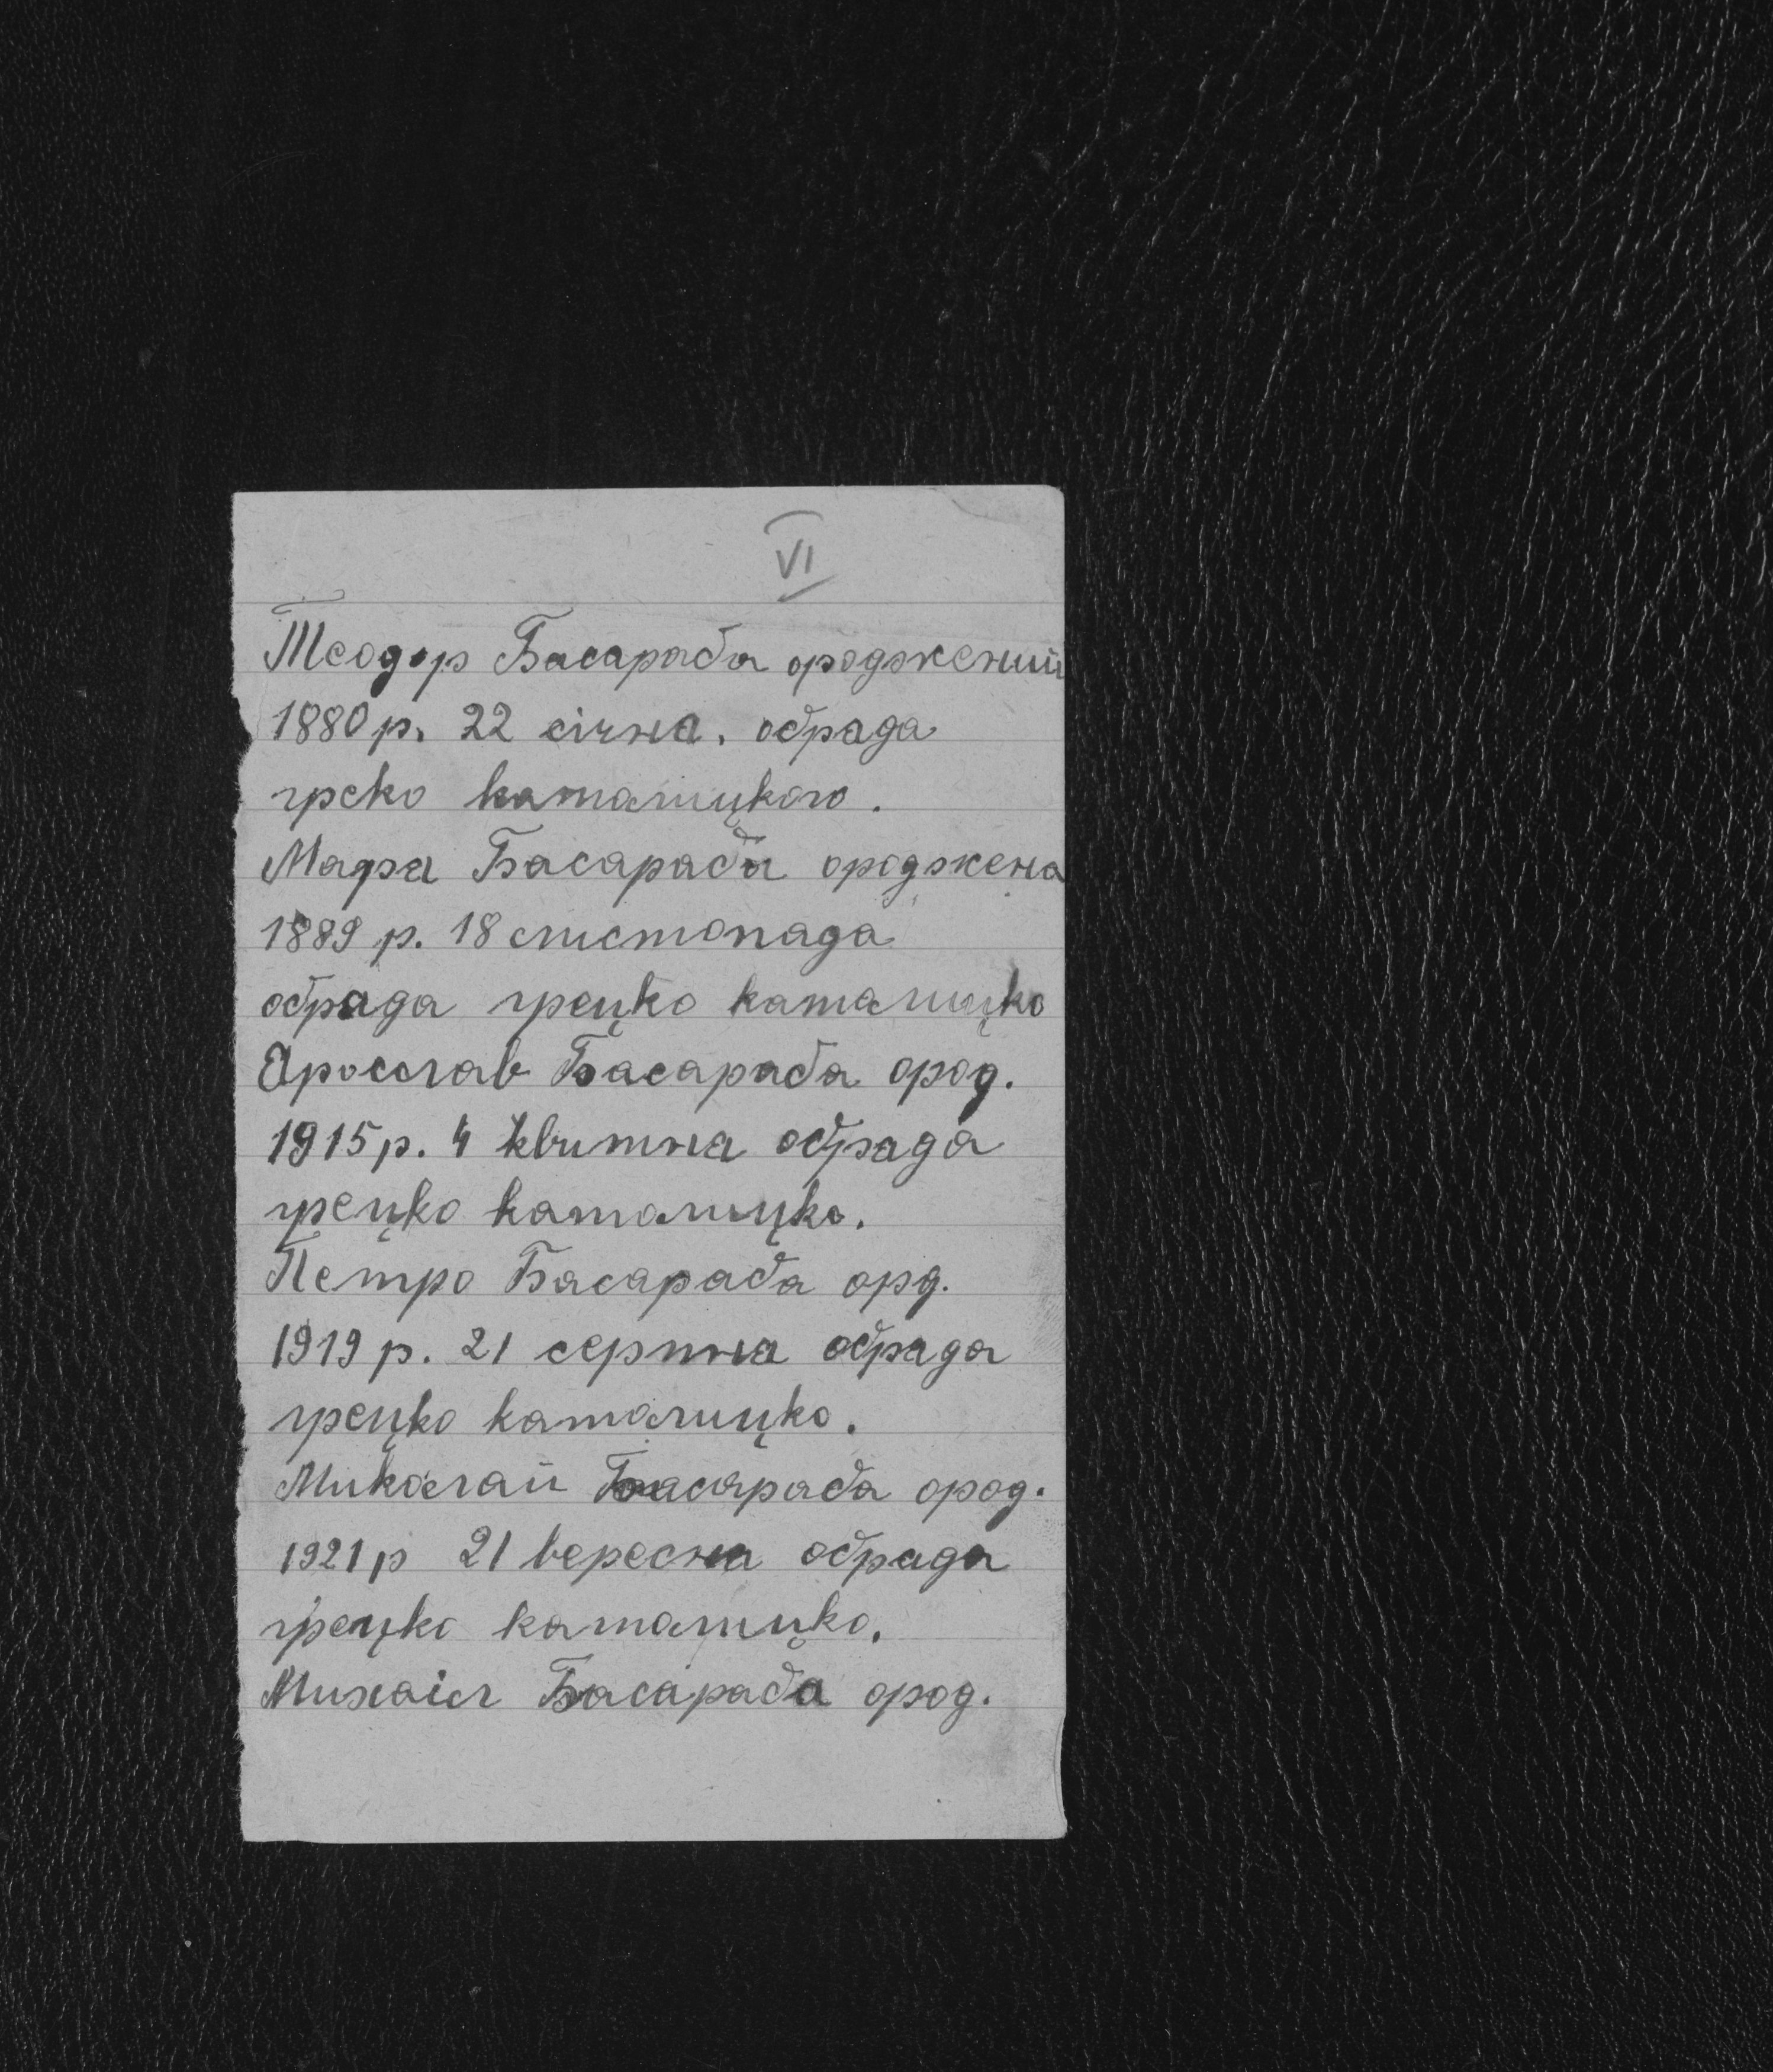 VI
Теодор Басараба ороджений
1880 р. 22 січна. обрада
греко каталицкого.
Мадра Басараба ороджена
1889 р. 18 слистопада
обрада грецко каталицко
Ярослав Басараба ород.
1915 р. 4 квитна обрада
грецко каталицко.
Петро Басараба орд.
1919 р. 21 серпна обрада
грецко каталицко.
Микалай Басараба ород.
1921 р 21 вересна обрада
грецко каталицко.
Михаіл Басараба ород.